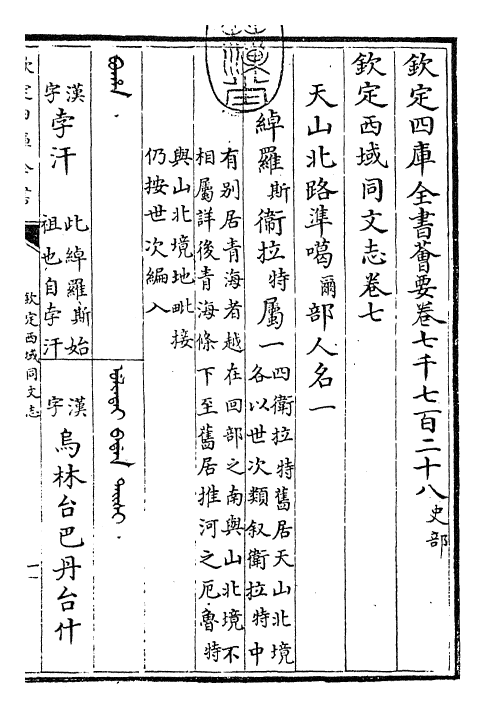 欽定四庫全書薈要卷七千七百二十八史部
欽定西域同文志卷七
天山北路準噶爾部人名一
綽羅斯衛拉特屬一四衛拉特舊居天山北境
各以世次類叙衛拉特中
有别居青海者越在回部之南與山北境不
相屬詳後青海條下至舊居推河之厄魯特
與山北境地毗接
仍按世次編入
漢字孛汗
此綽羅斯始
祖也自孛汗
漢字烏林台巴丹台什
欽定西域同文志